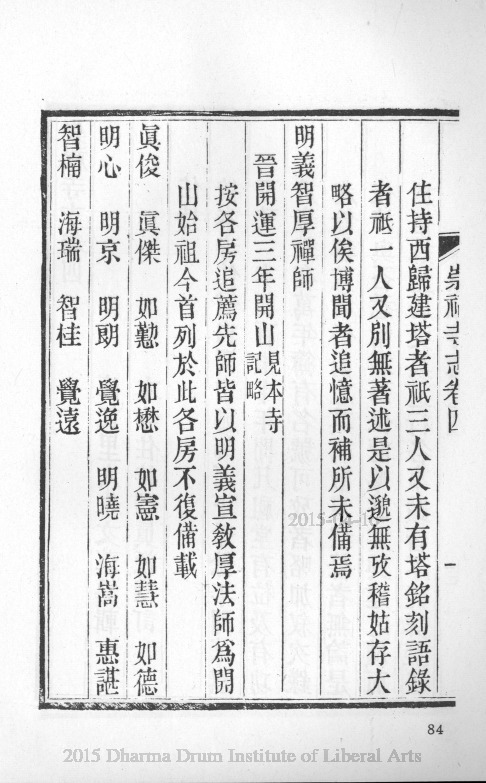 崇福寺志卷四
一
住持西歸建塔者祇三人又未有塔銘刻語錄
者祇一人又別無著述是以邈無攷稽姑存大
略以俟博聞者追憶而補所未備焉
明義智厚禪師
晉開運三年開山見本寺記略
按各房追薦先師皆以明義宣敎厚法師爲開
山始祖今首列於此各房不復備載
眞俊 眞傑 如懃 如懋 如憲 如慧 如德
明心 明京 明朗 覺逸 明曉 海嵩 惠諶
智楠 海瑞 智桂 覺遠
84
2015 Dharma Drum Institute of Liberal Arts